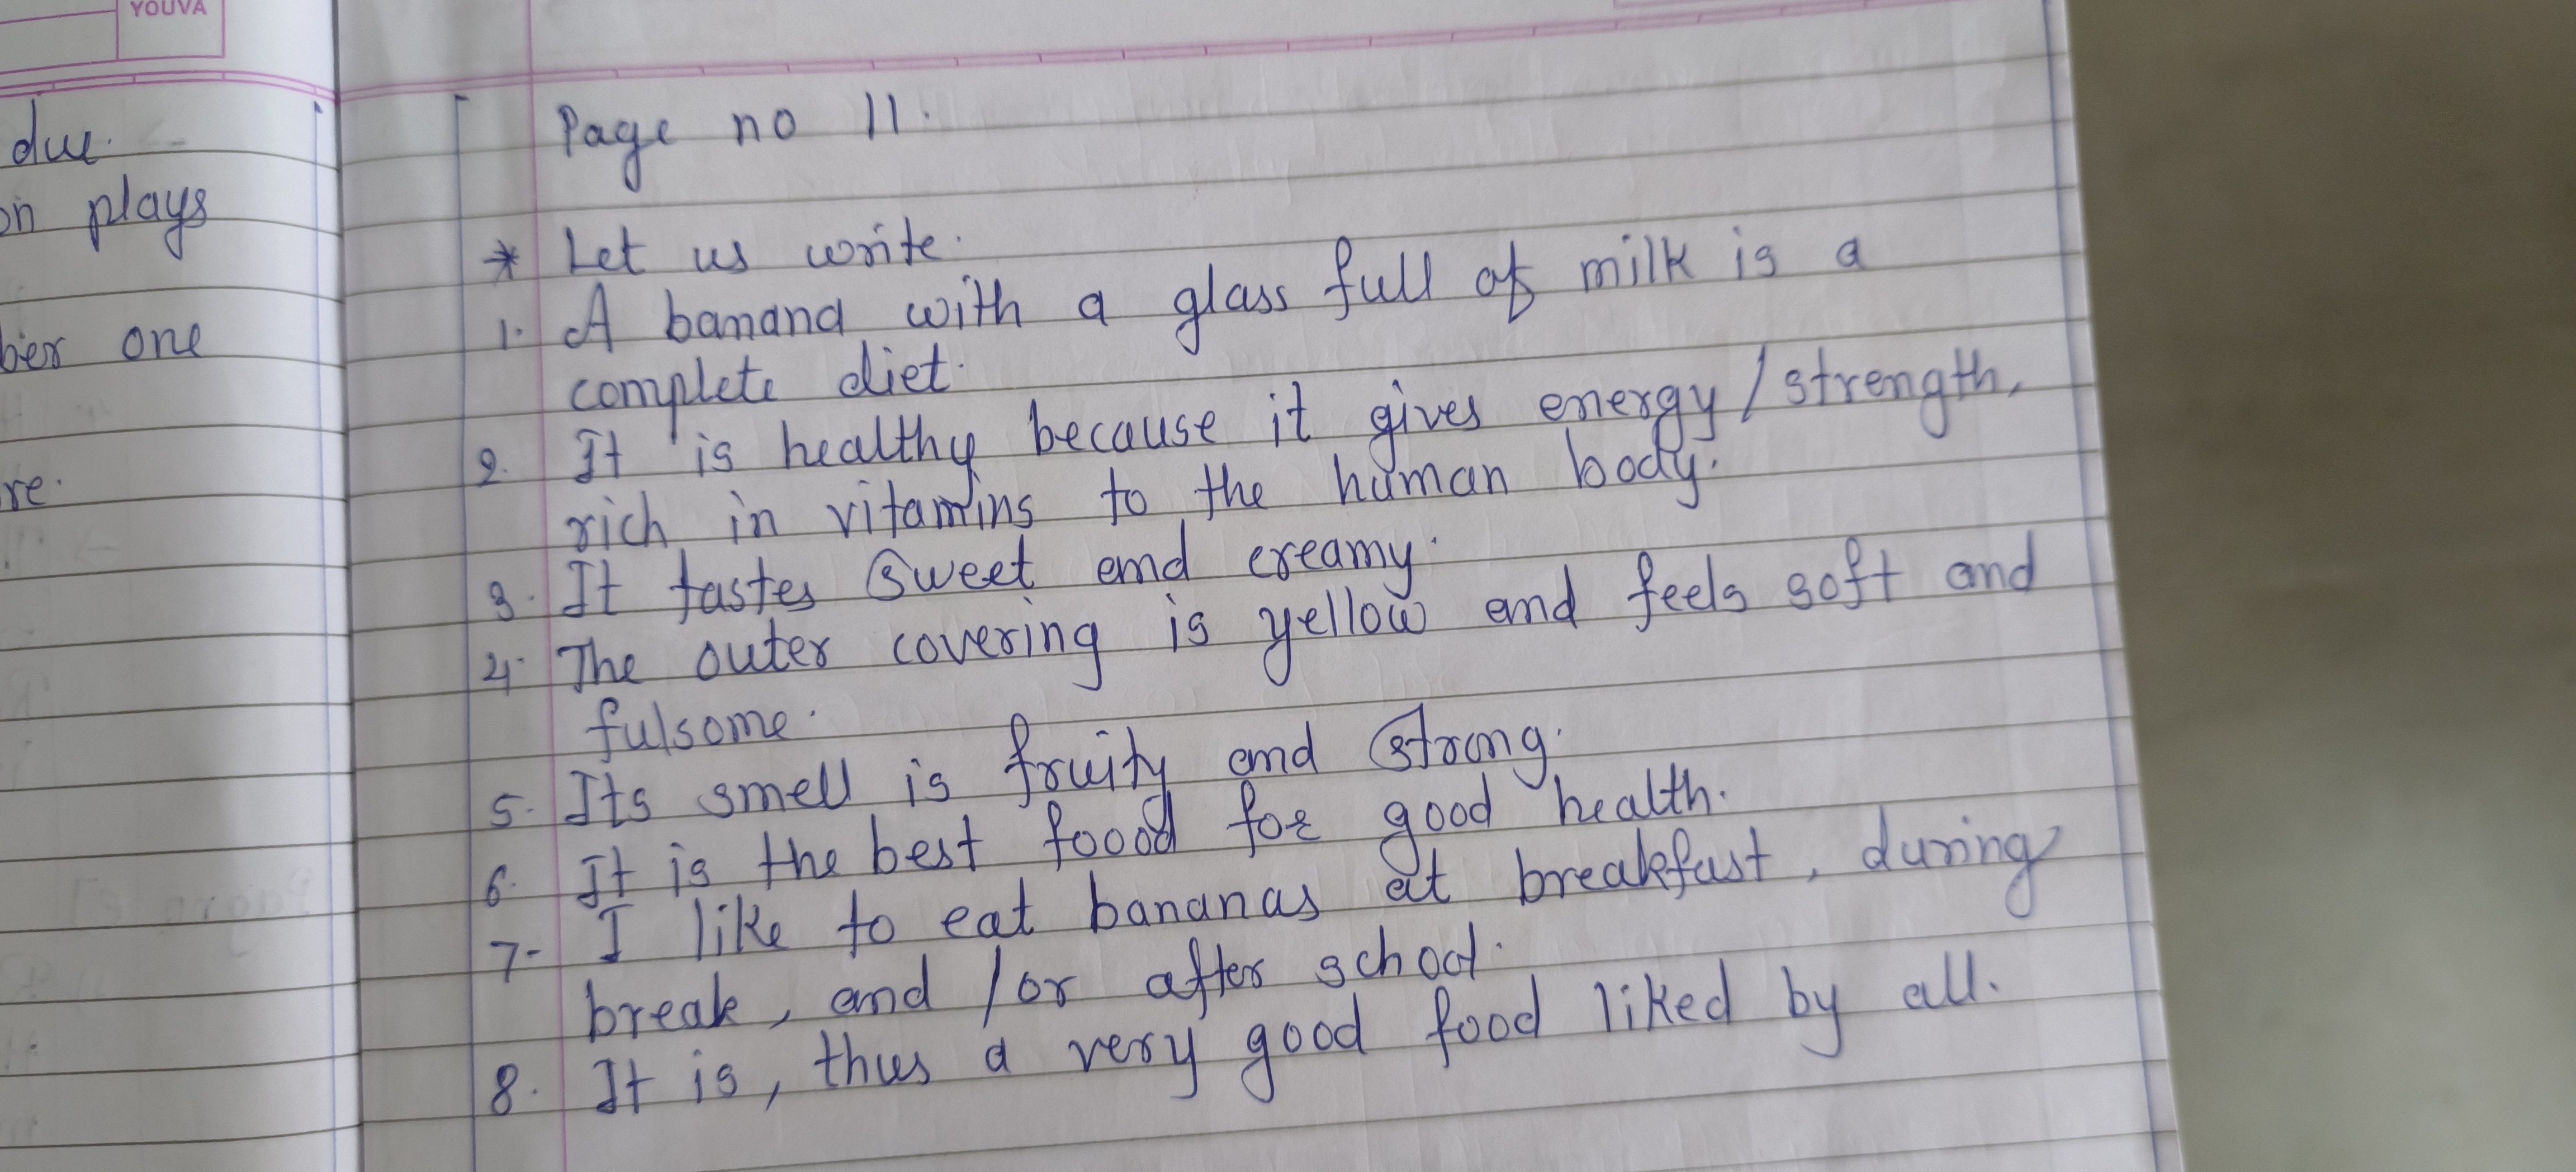 YOUVA
due.
on plays
ber one
re.
Page no 11.
* Let us write.
1. A banana with a glass full of milk is a
complete diet.
2. It is healthy because it gives energy / strength,
rich in vitamins to the human body.
3. It tastes sweet and creamy.
4. The outer covering is yellow and feels soft and
fulsome.
5. Its smell is fruity and strong.
6. It is the best foood for good health.
7- I like to eat bananas at breakfast, during
break, and / or after school.
8. It is, thus a very good food liked by all.